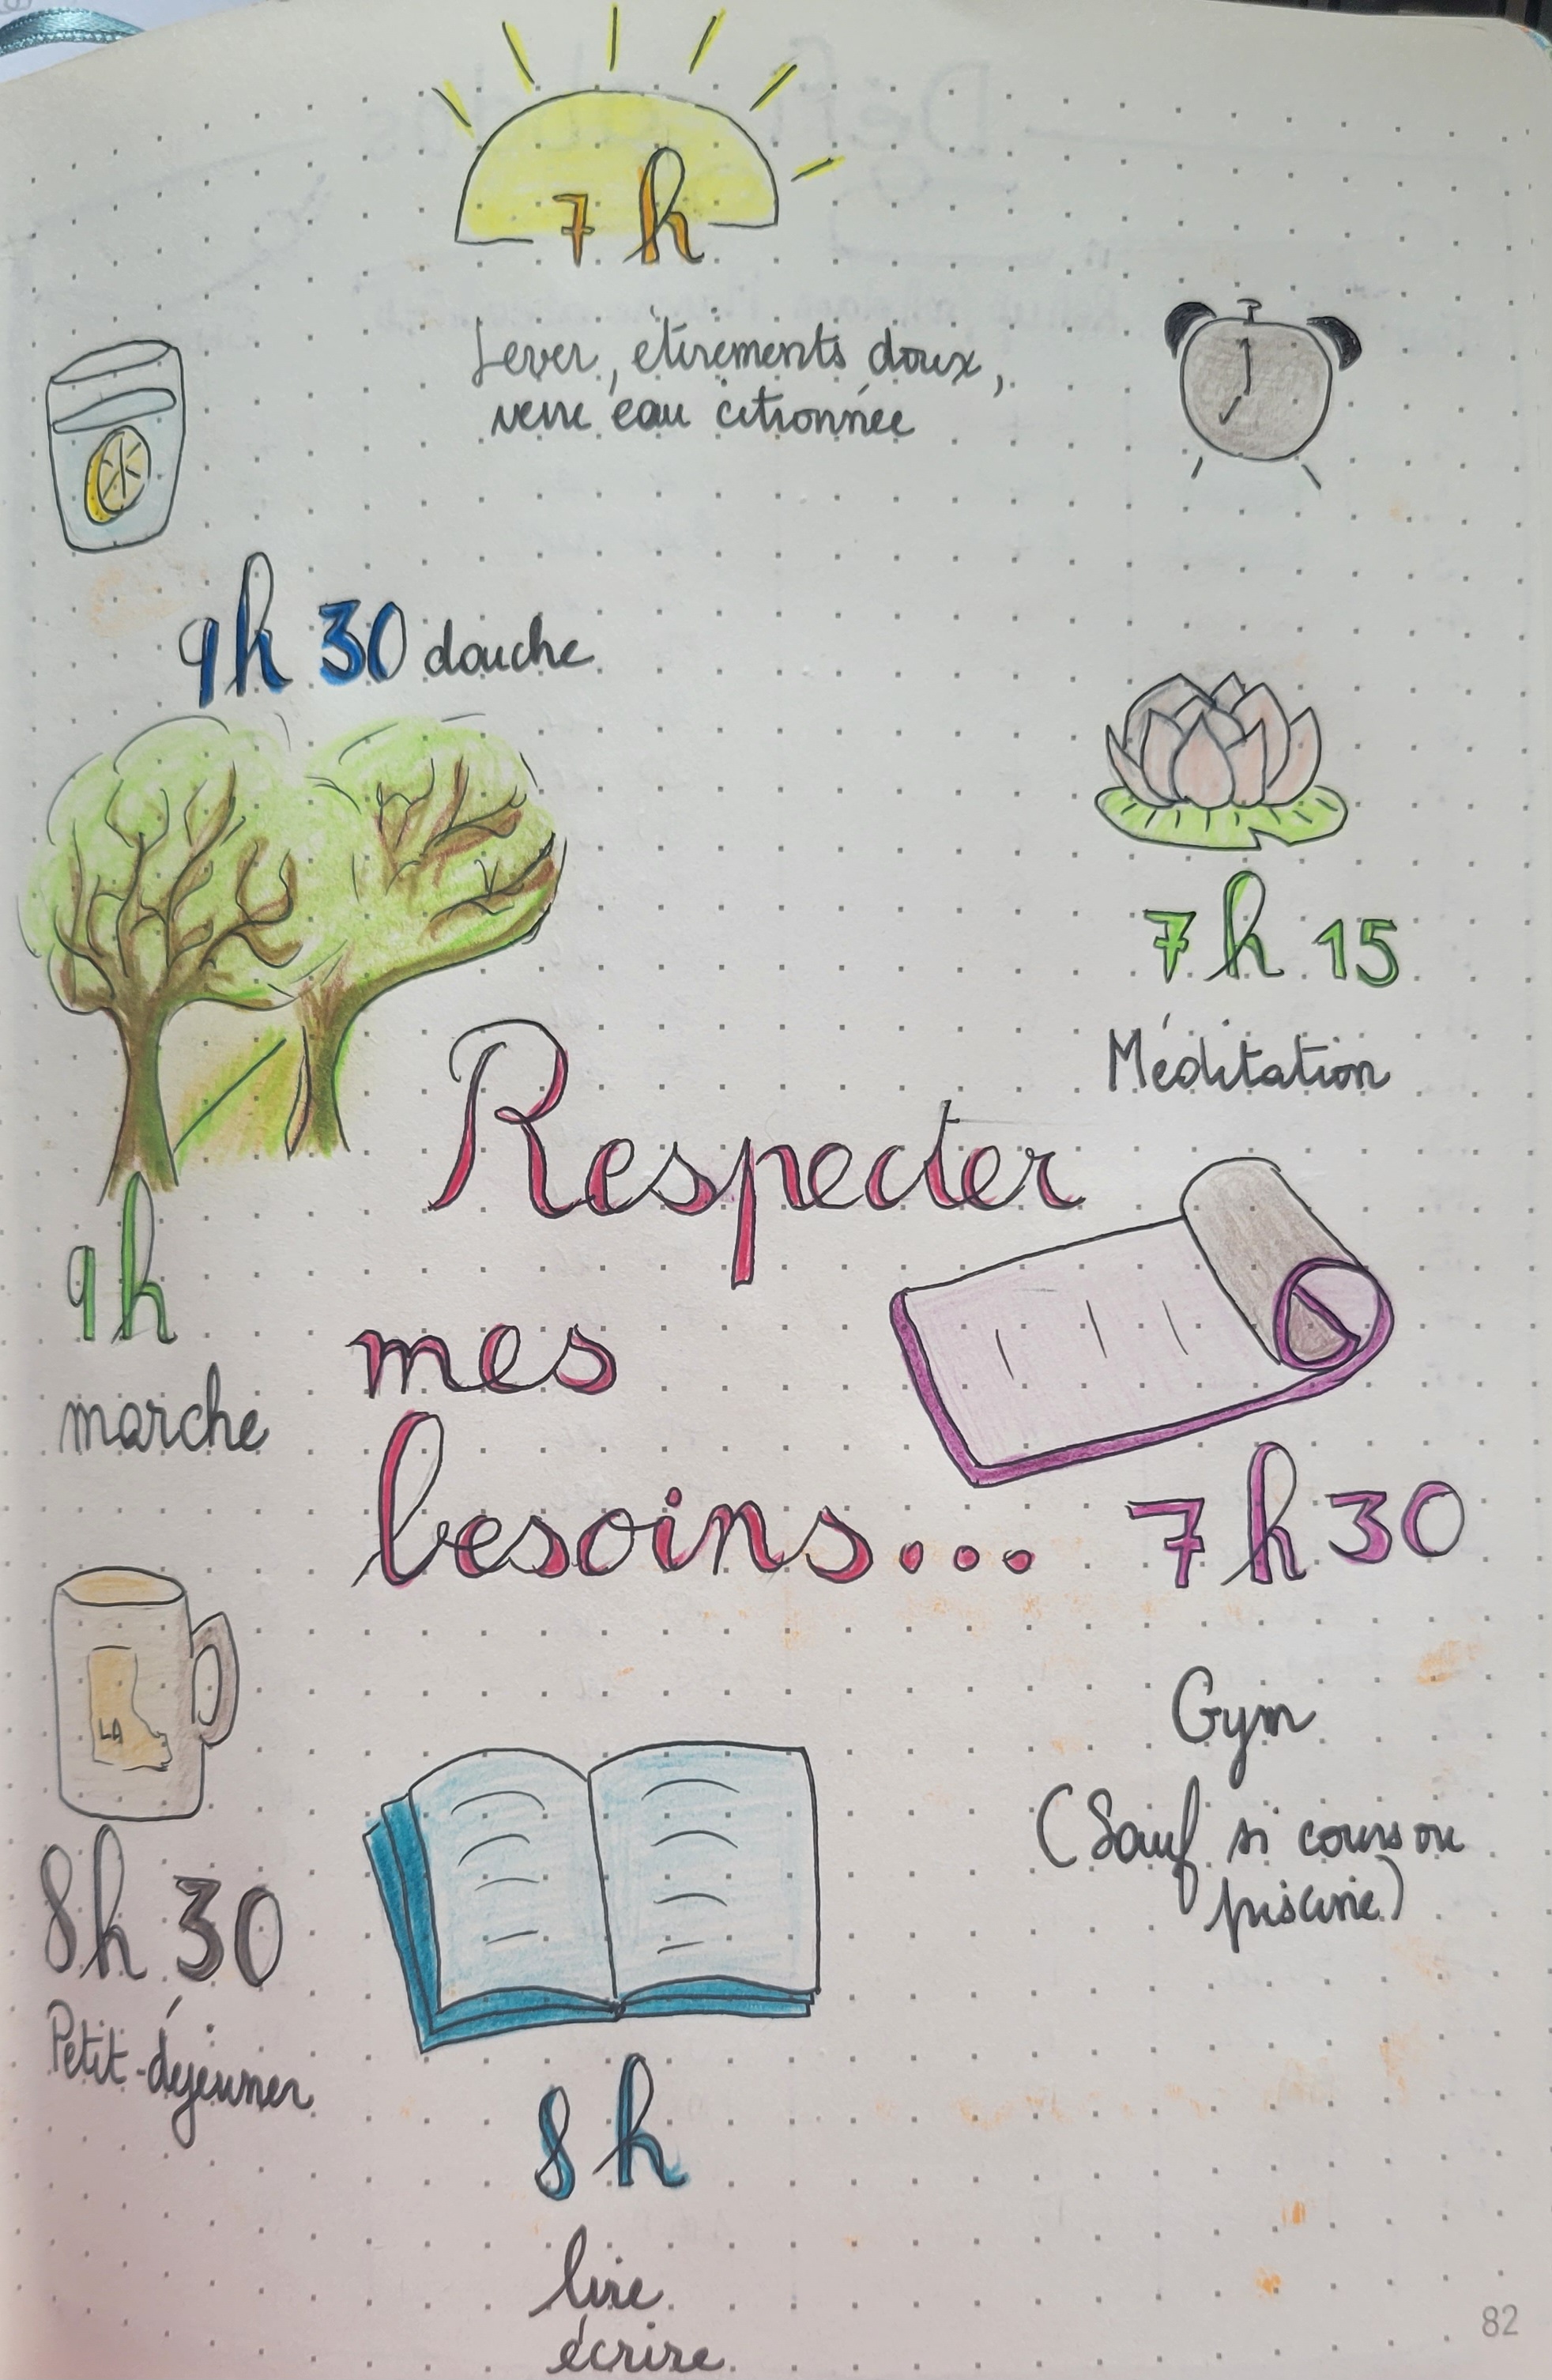 7 h
Lever, étirements doux,
verre eau citronnée
9h 30 douche
7 h 15
Méditation
Respecter
mes
besoins...
9h
marche
7 h 30
Gym
(Sauf si cours ou
piscine)
LA
8h 30
Petit-déjeuner
8 h
lire
écrire
82